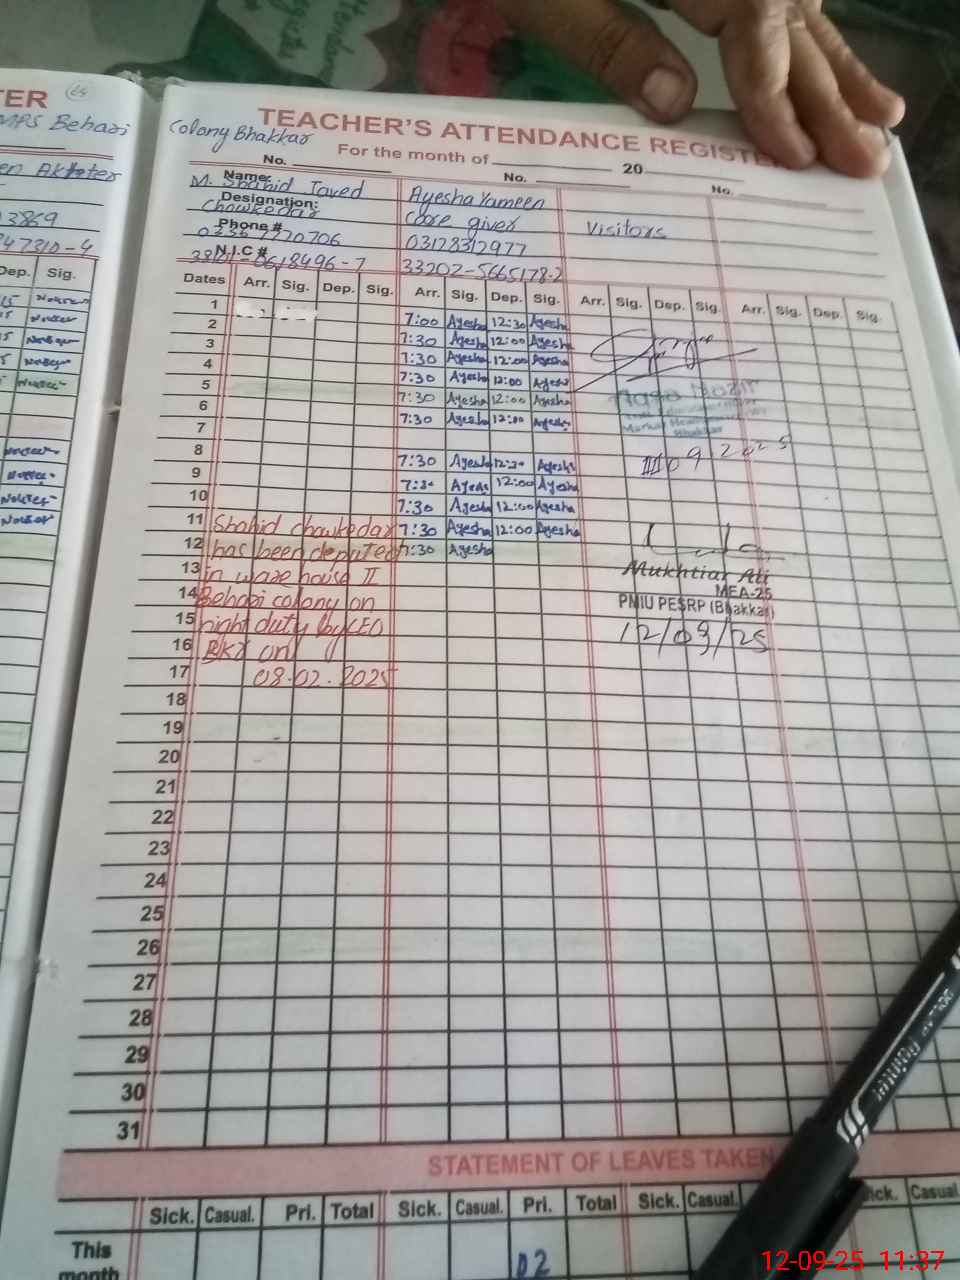 TER
64
MPS Behari
en Akhter
3869
47310-4
Dep. Sig.
TEACHER'S ATTENDANCE REGISTE
Colony Bhakkar
For the month of 20
No. No. No.
Name: M. Shahid Javed Ayesha Yameen
Designation: Chowkedar Care giver Visitors
Phone # 7720706 03128312977
N.I.C # 0618496-7 33202-5665178-2
Dates Arr. Sig. Dep. Sig. Arr. Sig. Dep. Sig. Arr. Sig. Dep. Sig. Arr. Sig. Dep. Sig.
1 7:00 Ayesha 12:30 Ayesha
2 7:30 Ayesha 12:00 Ayesha
3 7:30 Ayesha 12:00 Ayesha
4 7:30 Ayesha 12:00 Ayesha
5 7:30 Ayesha 12:00 Ayesha
6 7:30 Ayesha 12:00 Ayesha
7
8 7:30 Ayesha 12:30 Ayesha
9 7:30 Ayesha 12:00 Ayesha
10 7:30 Ayesha 12:00 Ayesha
11 Shahid chowkedar 7:30 Ayesha 12:00 Ayesha
12 has been deputed 7:30 Ayesha
13 in ware house II
14 Behari colony on
15 night duty by CEO
16 BKR on
17 08.02.2025
18
19
20
21
22
23
24
25
26
27
28
29
30
31
Bhakkar
09 2025
Mukhtiar Ali
MEA-25
PMIU PESRP (Bhakkar)
12/09/25
STATEMENT OF LEAVES TAKEN
Sick. Casual. Pri. Total Sick. Casual. Pri. Total Sick. Casual. Sick. Casual.
This
month 02
Pointer
12-09-25 11:37